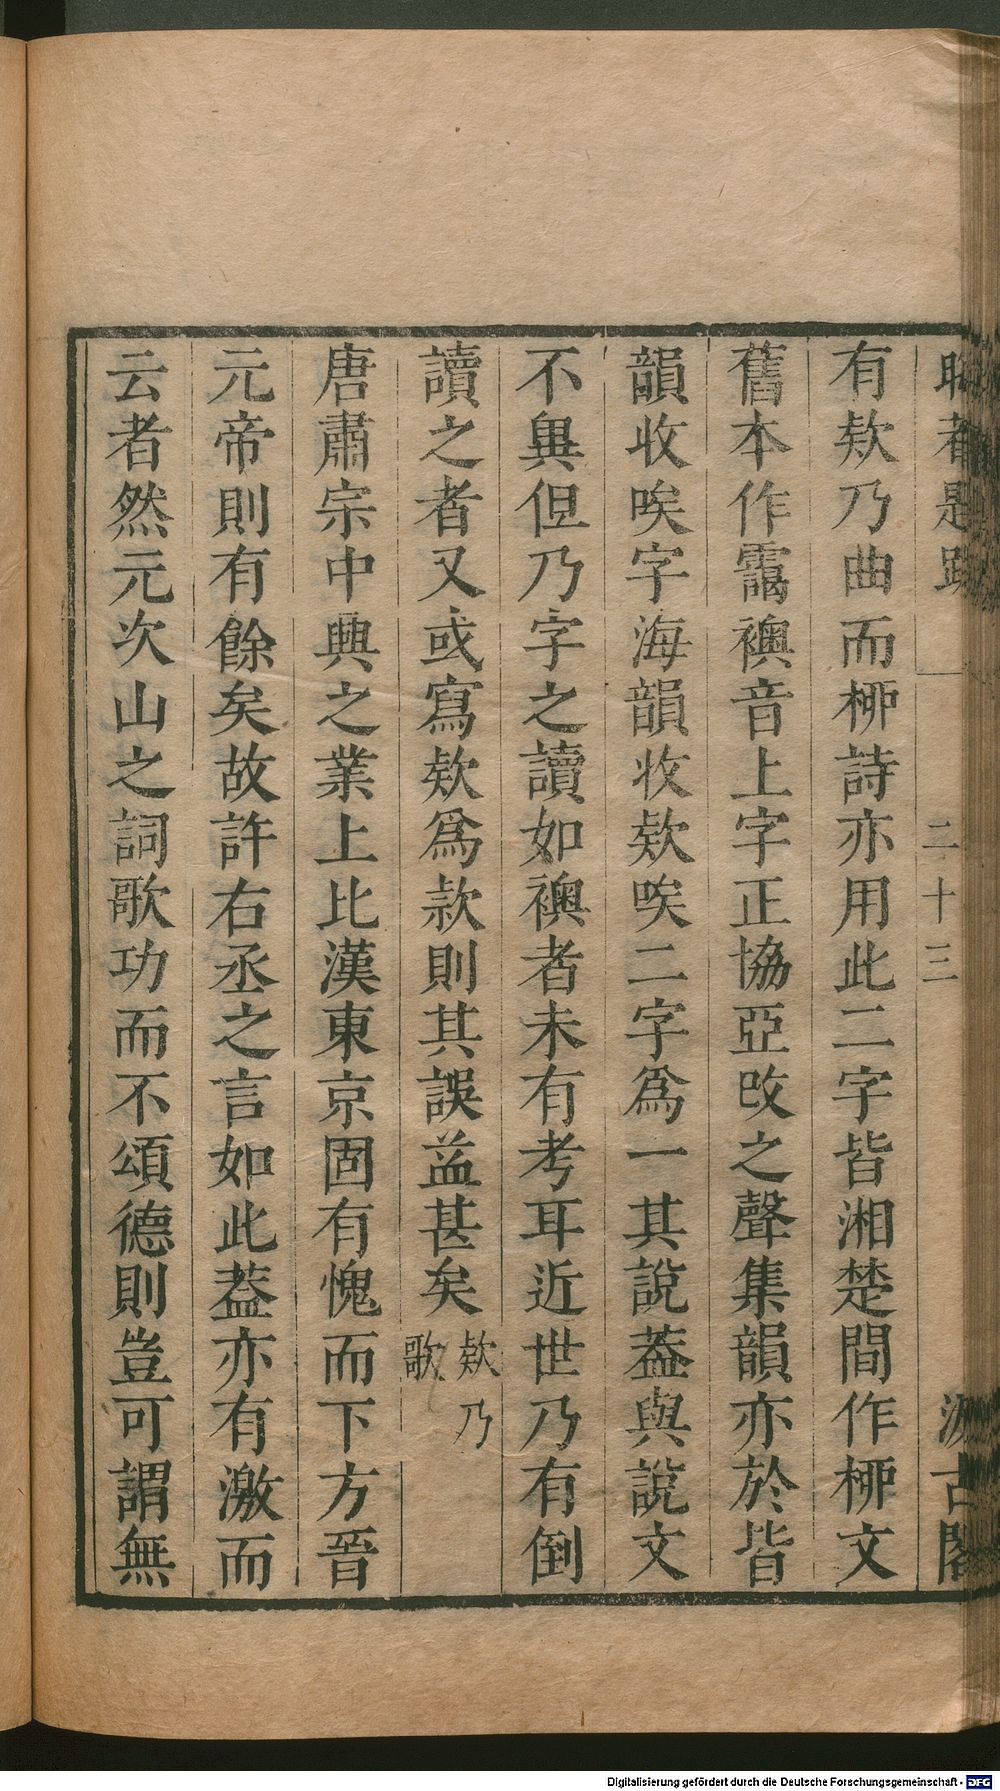 二十三
古閣
有欸乃曲而桺詩亦用此二字皆湘楚間作桺文
舊本作靄襖音上字正協亞改之聲集韻亦於皆
韻收唉字海韻收欸唉二字為一其說葢與說文
不異但乃字之讀如襖者未有考耳近世乃有倒
讀之者又或寫欸為款則其誤益甚矣
欸乃
歌
唐肅宗中興之業上比漢東京固有愧而下方晉
元帝則有餘矣故許右丞之言如此葢亦有激而
云者然元次山之詞歌功而不頌德則豈可謂無
Digitalisierung gefördert durch die Deutsche Forschungsgemeinschaft - DFG